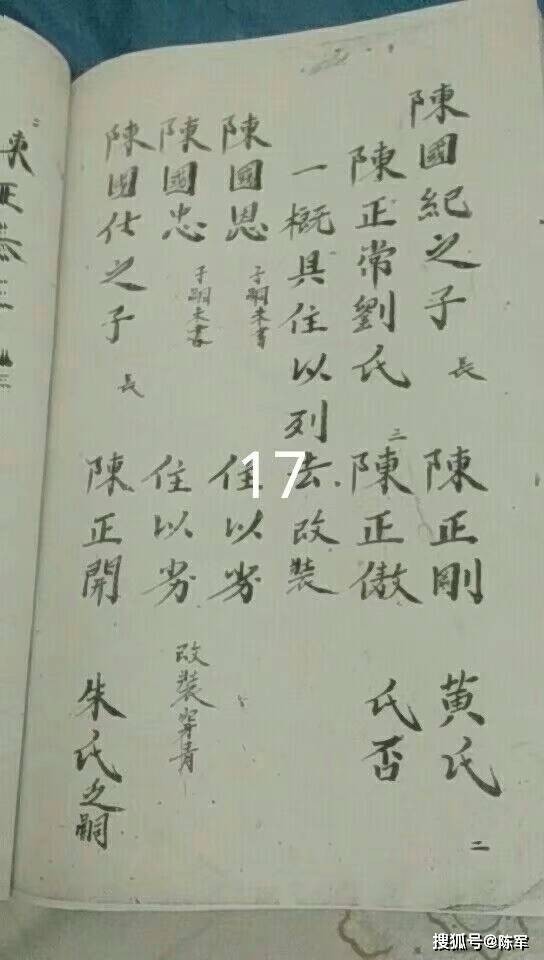 陳國紀之子 長 陳正剛 黄氏 二
陳正常劉氏 三 陳正傲 氏否
一概具住以列去改裝
陳國恩 子嗣未書 住以労
陳國忠 子嗣未書 住以労 改裝穿青
陳国仕之子 長 陳正開 朱氏之嗣
17
搜狐号@陈军